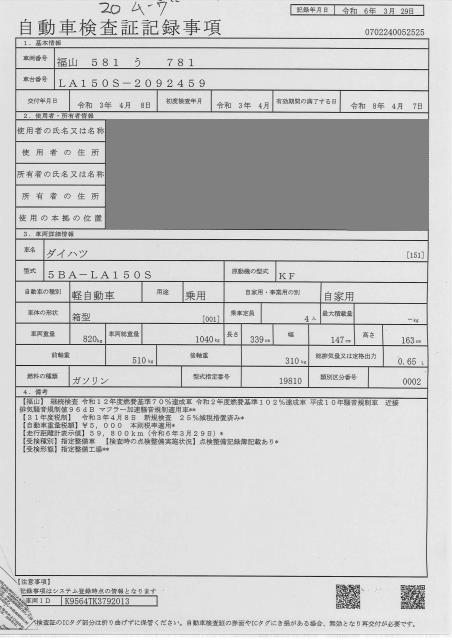 20 ムーヴ
記録年月日 令和 6年 3月 29日
自動車検査証記録事項
0702240052525
1. 基本情報
車両番号 福山 581 う 781
車台番号 LA150S-2092459
交付年月日 令和 3年 4月 8日 初度検査年月 令和 3年 4月 有効期間の満了する日 令和 8年 4月 7日
2. 使用者・所有者情報
使用者の氏名又は名称
使用者の住所
所有者の氏名又は名称
所有者の住所
使用の本拠の位置
3. 車両詳細情報
車名 ダイハツ [151]
型式 5BA-LA150S 原動機の型式 KF
自動車の種別 軽自動車 用途 乗用 自家用・事業用の別 自家用
車体の形状 箱型 [001] 乗車定員 4人 最大積載量 -kg
車両重量 820kg 車両総重量 1040kg 長さ 339cm 幅 147cm 高さ 163cm
前軸重 510kg 後軸重 310kg 総排気量又は定格出力 0.65L
燃料の種類 ガソリン 型式指定番号 19810 類別区分番号 0002
4. 備考
【福山】 継続検査 令和12年度燃費基準70%達成車 令和2年度燃費基準102%達成車 平成10年騒音規制車 近接
排気騒音規制値96dB マフラー加速騒音規制適用車**
【31年度税制】 令和3年4月8日 新規検査 25%減税措置済み*
【自動車重量税額】¥5,000 本則税率適用*
【走行距離計表示値】59,800km(令和6年3月29日)*
【受検種別】指定整備車 【検査時の点検整備実施状況】点検整備記録簿記載あり*
【受検形態】指定整備工場**
【注意事項】
記録事項はシステム登録時点の情報となります
車両ID K9564TK3792013
検査証のICタグ部分は折り曲げずに保管ください。自動車検査証の券面やICタグにき損がある場合、無効となり再交付が必要です。